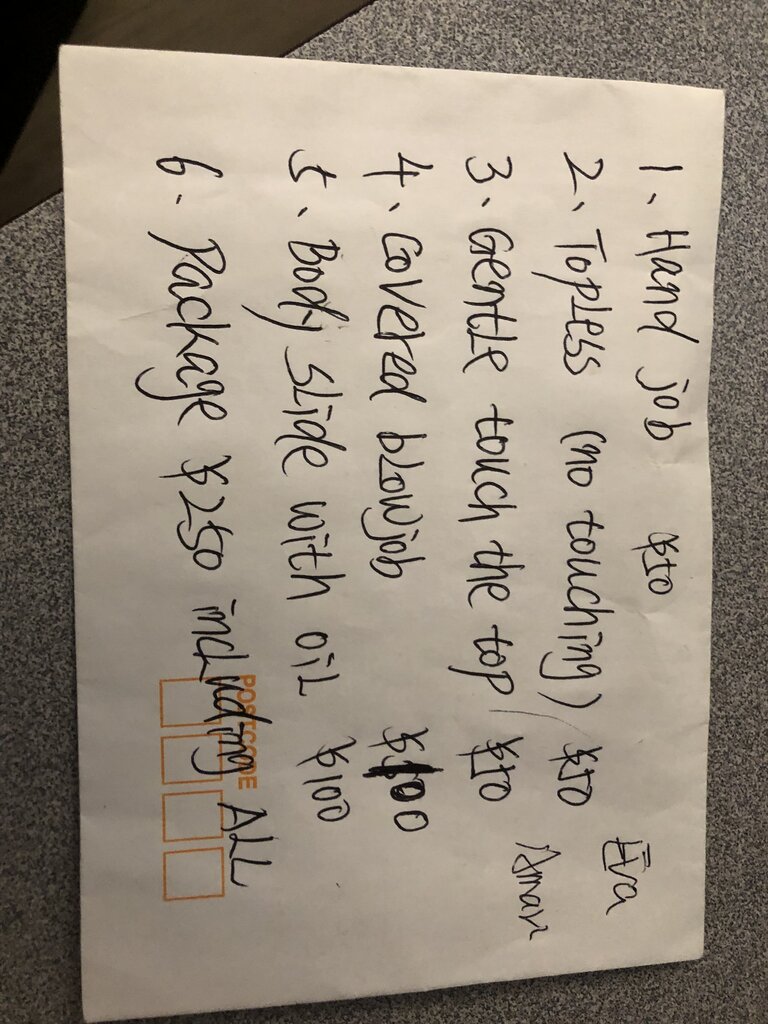 1、Hand job $50
2、Topless (no touching) $50
3、Gentle touch the top $50
4、Covered blowjob $100
5、Body slide with oil $100
6、Package $250 including ALL
Eva
POSTCODE